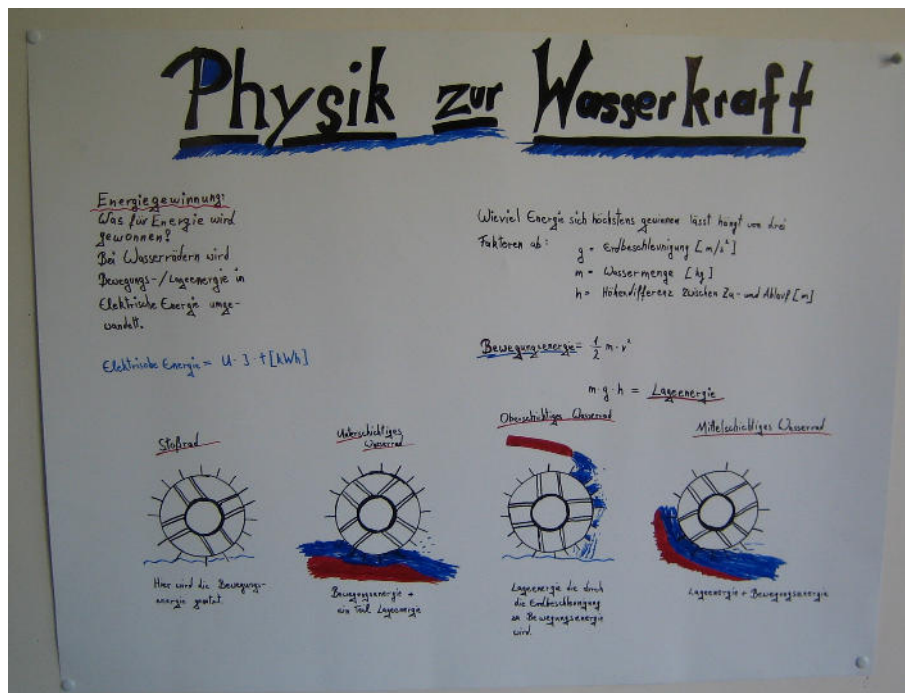 Physik zur Wasserkraft
Energiegewinnung:
Was für Energie wird
gewonnen?
Bei Wasserrädern wird
Bewegungs-/Lageenergie in
Elektrische Energie umge-
wandelt.
Elektrische Energie = U · I · t [kWh]
Wieviel Energie sich höchstens gewinnen lässt hängt von drei
Faktoren ab:
g = Erdbeschleunigung [m/s²]
m = Wassermenge [kg]
h = Höhendifferenz zwischen Zu- und Ablauf [m]
Bewegungsenergie = ½ m · v²
m · g · h = Lageenergie
Stoßrad
Hier wird die Bewegungs-
energie
Unterschichtiges
Wasserrad
Bewegungsenergie +
ein Teil Lageenergie
Oberschichtiges Wasserrad
Lageenergie die durch
die Erdbeschleunigung
zu Bewegungsenergie
wird.
Mittelschichtiges Wasserrad
Lageenergie + Bewegungsenergie